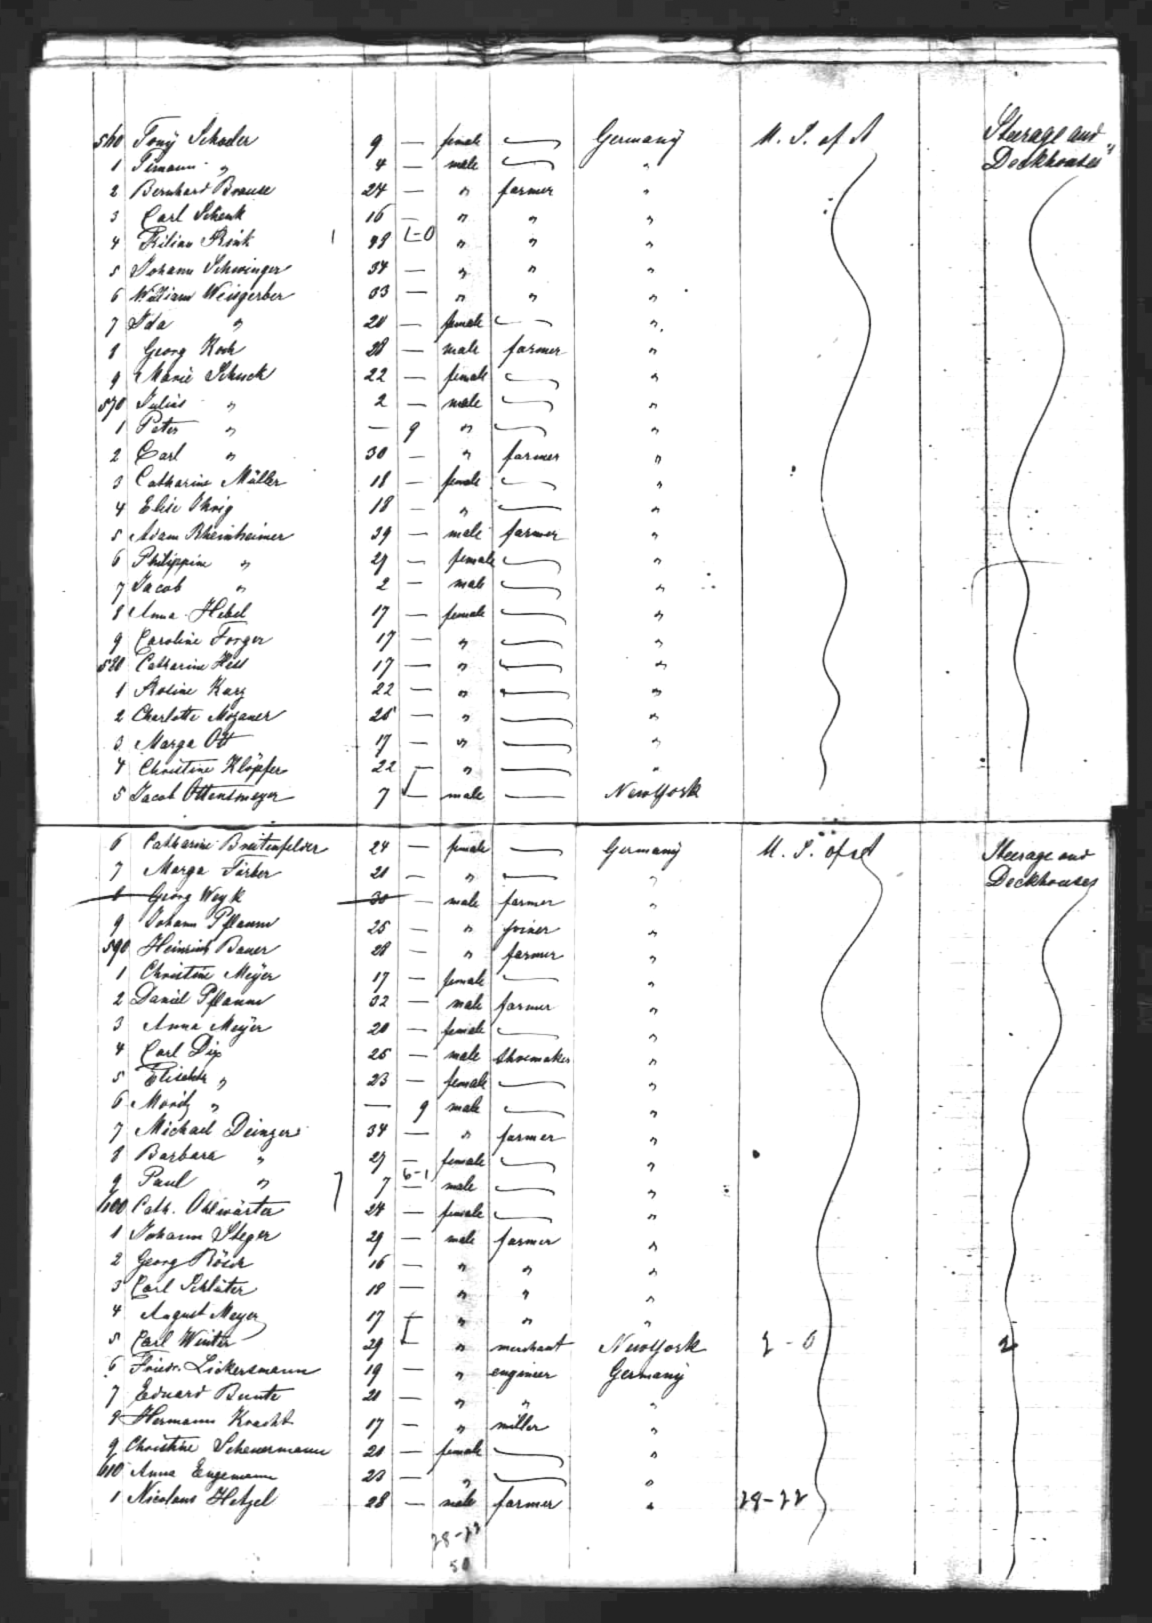 560 Tony Schoder 9 — female — Germany U. S. of A Steerage and
1 Timann " 4 — male — " Deckhouses"
2 Bernhard Brause 24 — " farmer "
3 Carl Schenk 16 — " " "
4 Kilian Rink 1 49 1-0 " " "
5 Johann Schwinger 34 — " " "
6 William Weisgerber 33 — " " "
7 Ida " 20 — female — "
8 Georg Koch 28 — male farmer "
9 Marie Schuck 22 — female — "
570 Julius " 2 — male — "
1 Peter " — 9 " — "
2 Carl " 30 — " farmer "
3 Catharine Müller 18 — female — "
4 Elise Ihrig 18 — " — "
5 Adam Rheinheimer 39 — male farmer "
6 Philippine " 27 — female — "
7 Jacob " 2 — male — "
8 Anna Hebel 17 — female — "
9 Caroline Forger 17 — " — "
580 Catharine Hess 17 — " — "
1 Rosine Karg 22 — " — "
2 Charlotte Mozaner 25 — " — "
3 Marga Ott 17 — " — "
4 Christine Klöpfer 22 — " — "
5 Jacob Ottensmeyer 7 — male — NewYork
6 Catharine Breitenfelder 24 — female — Germany U. S. of A Steerage and
7 Marga Färber 21 — " — " Deckhouses
8 Georg Weyk 30 — male farmer "
9 Johann Pflaum 25 — " joiner "
590 Heinrich Bauer 28 — " farmer "
1 Christine Meÿer 17 — female — "
2 Daniel Pflaum 32 — male farmer "
3 Anna Meÿer 20 — female — "
4 Carl Dix 25 — male shoemaker "
5 Elisabeth " 23 — female — "
6 Moritz " — 9 male — "
7 Michael Deinzer 34 — " farmer "
8 Barbara " 27 — female — "
9 Paul " 7 6-1 male — "
600 Cath. Ohlwärter 24 — female — "
1 Johann Steger 29 — male farmer "
2 Georg Rösch 16 — " " "
3 Carl Schlüter 18 — " " "
4 August Meyer 17 — " " "
5 Carl Winter 29 — " merchant NewYork 2-0 2
6 Friedr. Lickersmann 19 — " engineer Germany
7 Eduard Bunte 21 — " " "
8 Hermann Kracht 17 — " miller "
9 Christine Scheuermann 20 — female — "
610 Anna Engemann 23 — " — "
1 Nicolaus Hetzel 28 — male farmer " 28-22
28-22
50